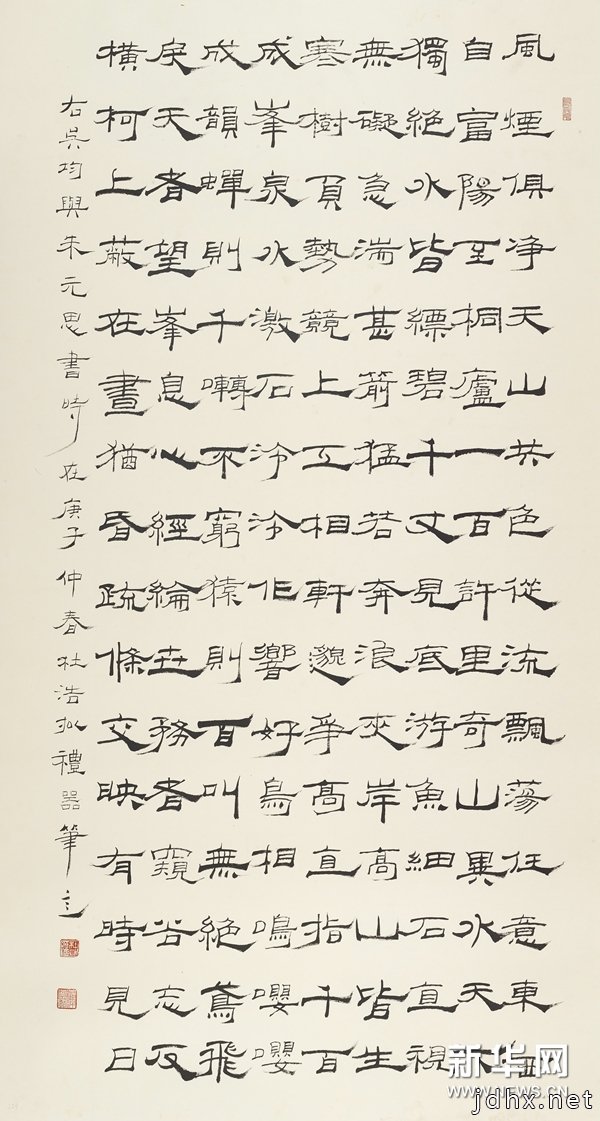 風煙俱净天山共色從流飄蕩任意東西
自富陽至桐廬一百許里奇山異水天下
獨絕水皆縹碧千丈見底游魚細石直視
無礙急湍甚箭猛若奔浪夾岸高山皆生
寒樹負勢競上互相軒邈爭高直指千百
成峯泉水激石泠泠作響好鳥相鳴嚶嚶
成韻蟬則千囀不窮猿則百叫無絕鳶飛
戾天者望峯息心經綸世務者窺谷忘反
橫柯上蔽在晝猶昏疏條交映有時見日
右吳均與朱元思書時在庚子仲春杜浩擬禮器筆之
新华网
WWW.NEWS.CN
jdhx.net